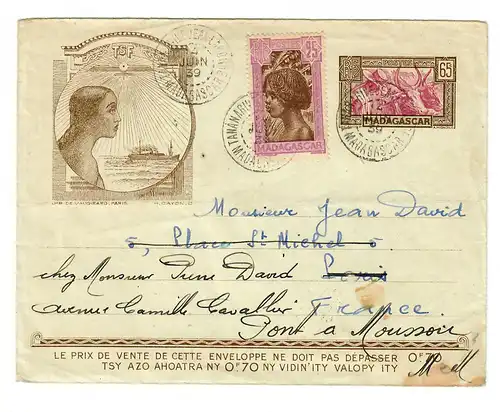 TSF
JUIN
39
MADAGASCAR
25c
MADAGASCAR
TANANARIVE
MADAGASCAR
65
MADAGASCAR
39
MADAGASCAR
IMP. DE VAUGIRARD, PARIS
Monsieur Jean David
5, Place St Michel 5
chez Monsieur Pierre David Paris
avenue Camille Cavallier France
Pont à Mousson
M et M
LE PRIX DE VENTE DE CETTE ENVELOPPE NE DOIT PAS DÉPASSER 0F70
TSY AZO AHOATRA NY 0F70 NY VIDIN'ITY VALOPY ITY